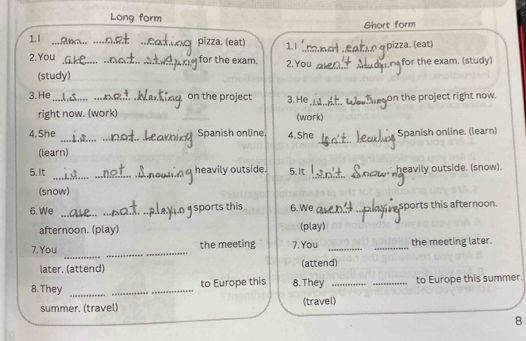 Long form
1.I am not eating pizza. (eat)
2.You are not studying for the exam.
(study)
3.He is not Working on the project
right now. (work)
4.She is not Learning Spanish online.
(learn)
5.It is not Snowing heavily outside.
(snow)
6.We are not playing sports this
afternoon. (play)
7.You ............ ............ ............ the meeting
later. (attend)
8.They ............ ............ ............ to Europe this
summer. (travel)
Short form
1.I 'm not eating pizza. (eat)
2.You aren't Studying for the exam. (study)
3.He isn't Working on the project right now.
(work)
4.She isn't Spanish online. (learn)
5.It isn't Snowing heavily outside. (snow).
6.We aren't playing sports this afternoon.
(play)
7.You ............ ............ the meeting later.
(attend)
8.They ............ ............ to Europe this summer.
(travel)
8